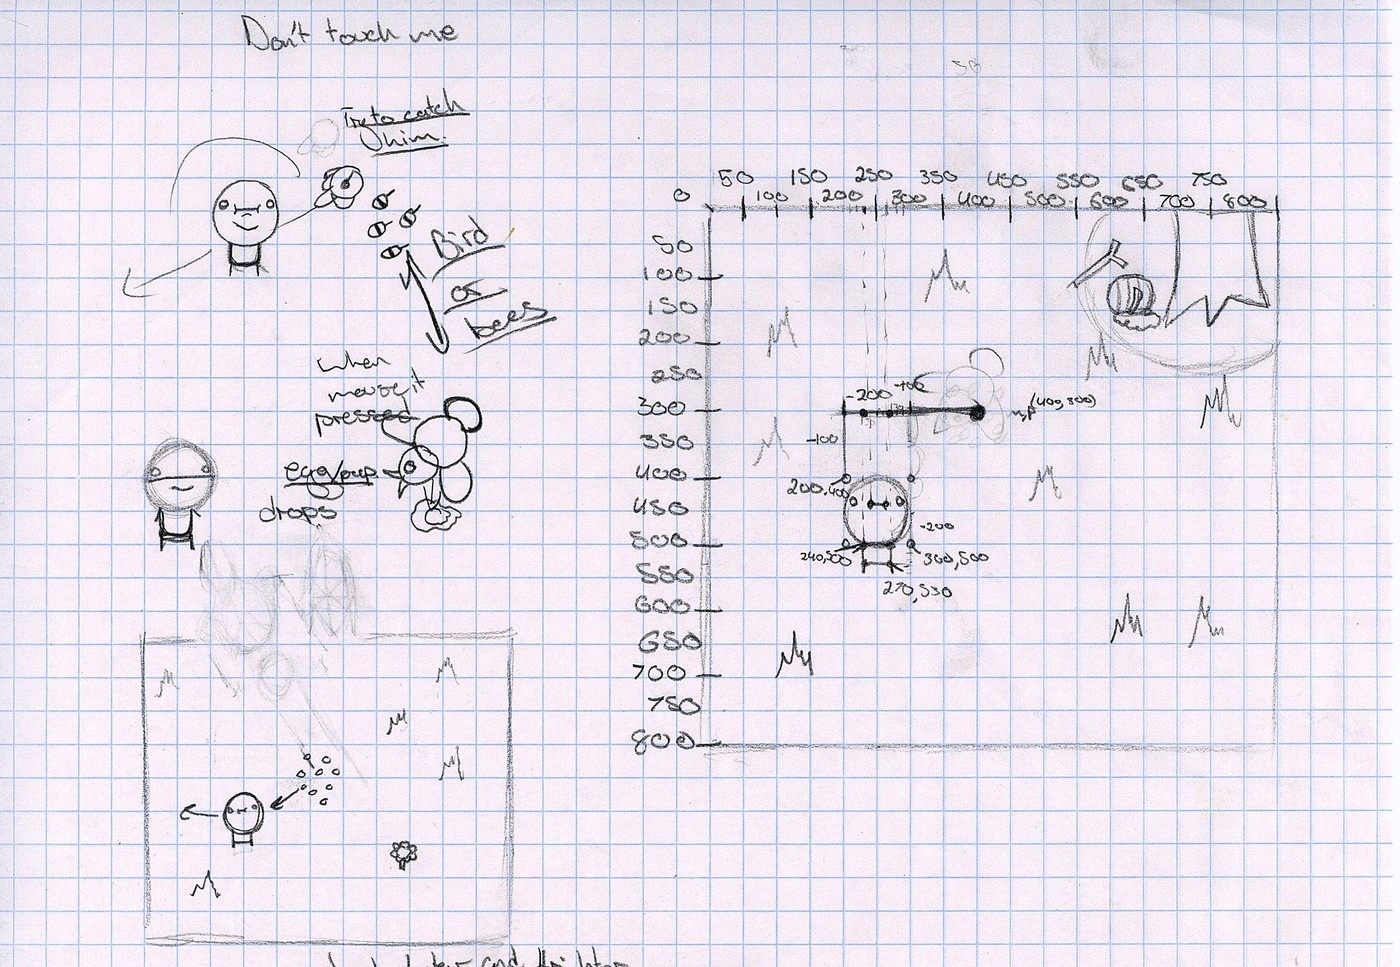 Don't touch me
Try to catch
him.
Bird
or
bees
when
mouse it
pressed
egg/poop
drops
50 150 250 350 450 550 650 750
0 100 200 300 400 500 600 700 800
50
100
150
200
250
300
350
400
450
500
550
600
650
700
750
800
-200 -100
(400,300)
-100
200,400
-200
240,500
300,500
270,530